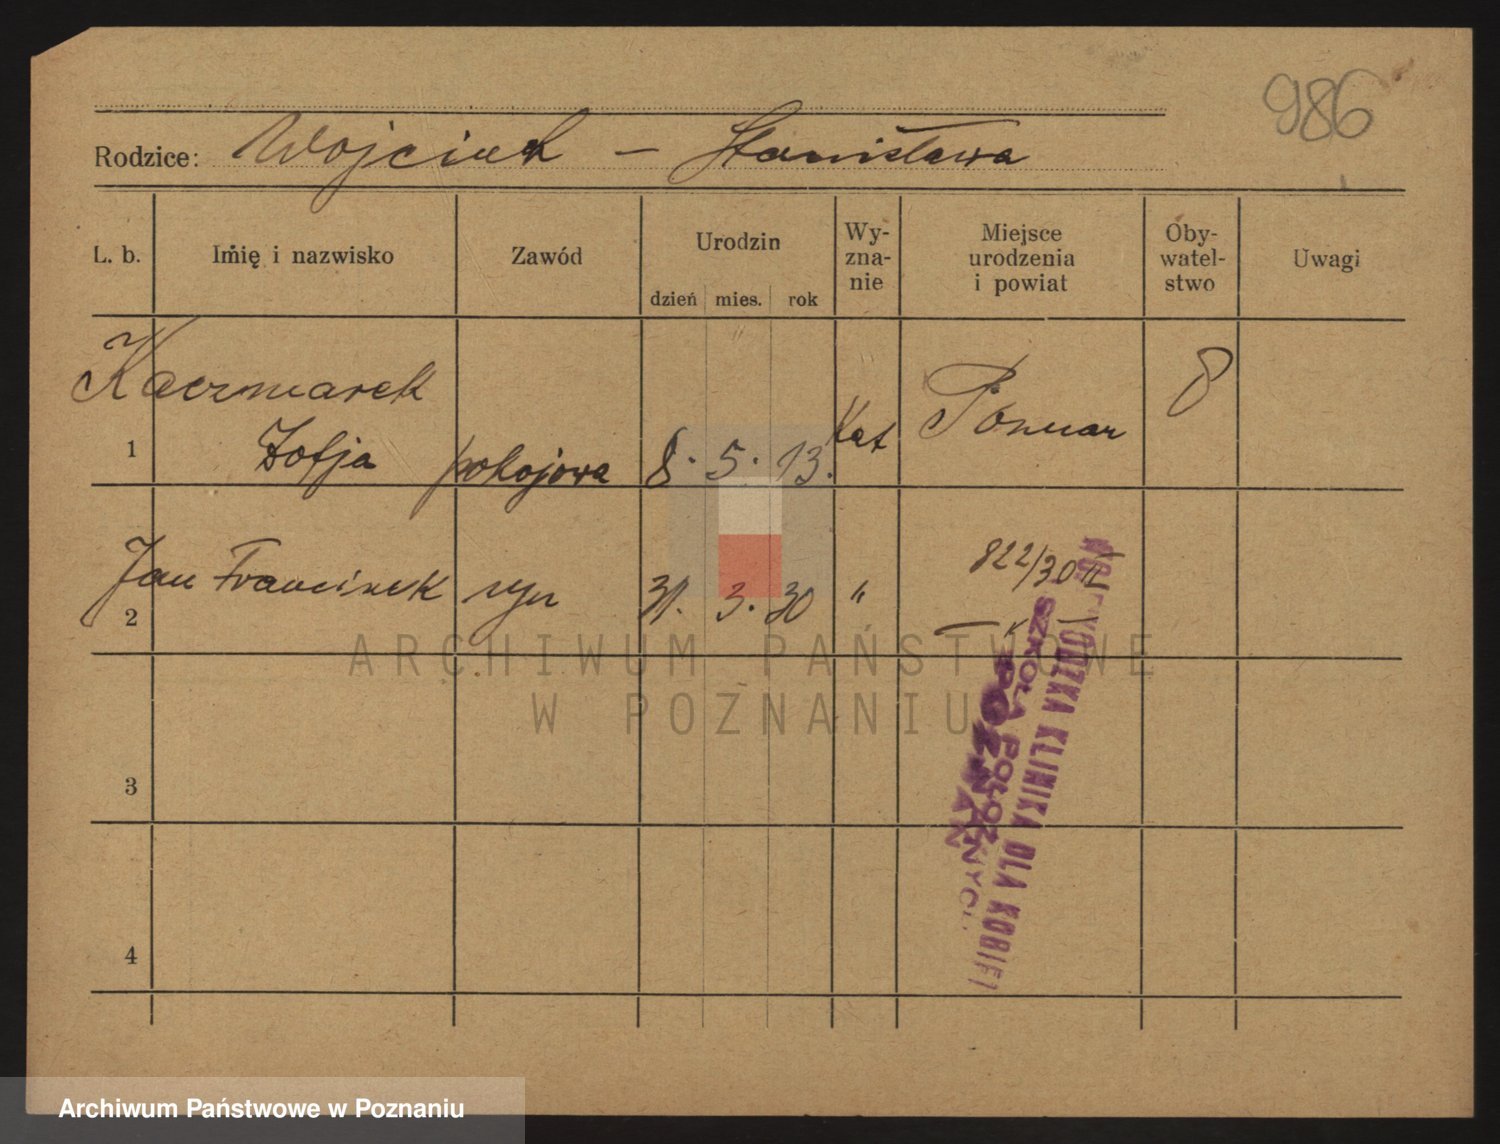 986
Rodzice: Wojciech – Stanisława
L. b.
Imię i nazwisko
Zawód
Urodzin
dzień mies. rok
Wy-
zna-
nie
Miejsce
urodzenia
i powiat
Oby-
watel-
stwo
Uwagi
Kaczmarek
1 Zofja pokojowa 8. 5. 13. Kat Poznań
Jan Franciszek syn 31. 3. 30 "
822/30 II
2
3
4
WOJEWÓDZKA KLINIKA DLA KOBIET
SZKOŁA POŁOŻNYCH
POZNAŃ
ARCHIWUM PAŃSTWOWE
W POZNANIU
Archiwum Państwowe w Poznaniu